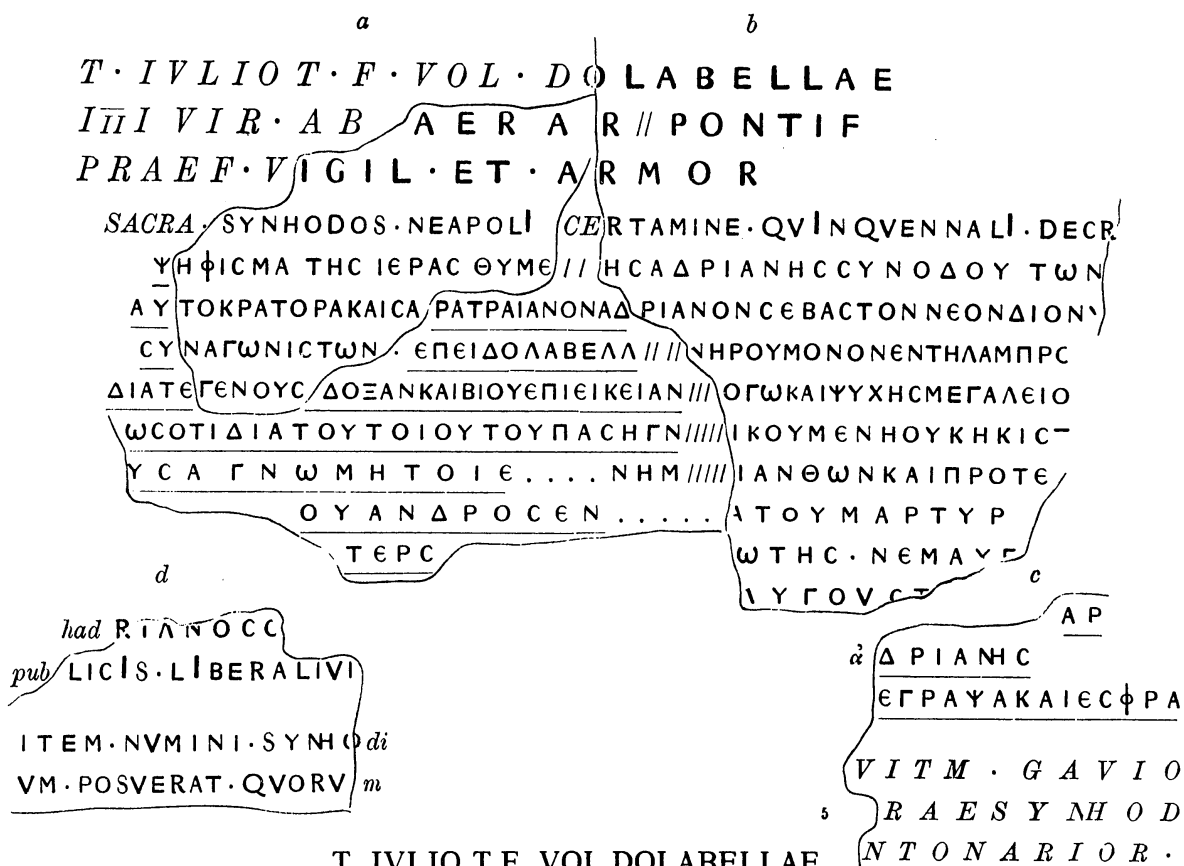 a b
T · IVLIO T · F · VOL · DOLABELLAE
IIII VIR · AB AERAR // PONTIF
PRAEF · VIGIL · ET · ARMOR
SACRA · SYNHODOS · NEAPOLI CERTAMINE · QVINQVENNALI · DECR
ΨΗΦΙCΜΑ ΤΗC ΙΕΡΑC ΘΥΜΕ // ΗCΑΔΡΙΑΝΗCCΥΝΟΔΟΥ ΤωΝ
ΑΥΤΟΚΡΑΤΟΡΑΚΑΙCΑΡΑΤΡΑΙΑΝΟΝΑΔΡΙΑΝΟΝCΕΒΑCΤΟΝΝΕΟΝΔΙΟΝ
CΥΝΑΓωΝΙCΤωΝ · ΕΠΕΙΔΟΛΑΒΕΛΛ // // ΝΗΡΟΥΜΟΝΟΝΕΝΤΗΛΑΜΠΡC
ΔΙΑΤΕΓΕΝΟΥC ΔΟΞΑΝΚΑΙΒΙΟΥΕΠΙΕΙΚΕΙΑΝ /// ΟΓωΚΑΙΨΥΧΗCΜΕΓΑΛΕΙΟ
ωCΟΤΙΔΙΑΤΟΥΤΟΙΟΥΤΟΥΠΑCΗΓΝ ///// ΙΚΟΥΜΕΝΗΟΥΚΗΚΙC
ΥCΑ ΓΝωΜΗΤΟΙΕ . . . . ΝΗΜ ///// ΙΑΝΘωΝΚΑΙΠΡΟΤΕ
ΟΥΑΝΔΡΟCΕΝ . . . . . ΑΤΟΥΜΑΡΤΥΡ
ΤΕΡC ωΤΗC · ΝΕΜΑΥΓ
ΑΥΓΟVCΤ
d
had RIANOCC
pub LICIS · LIBERALIVI
ITEM · NVMINI · SYNHO di
VM · POSVERAT · QVORV m
c
ΑΡ
ἀ ΔΡΙΑΝΗC
ΕΓΡΑΨΑΚΑΙΕCΦΡΑ
VITM · GAVIO
5 RAESYNHOD
NTONARIOR ·
T. IVLIO T. F. VOL. DOLABELLAE